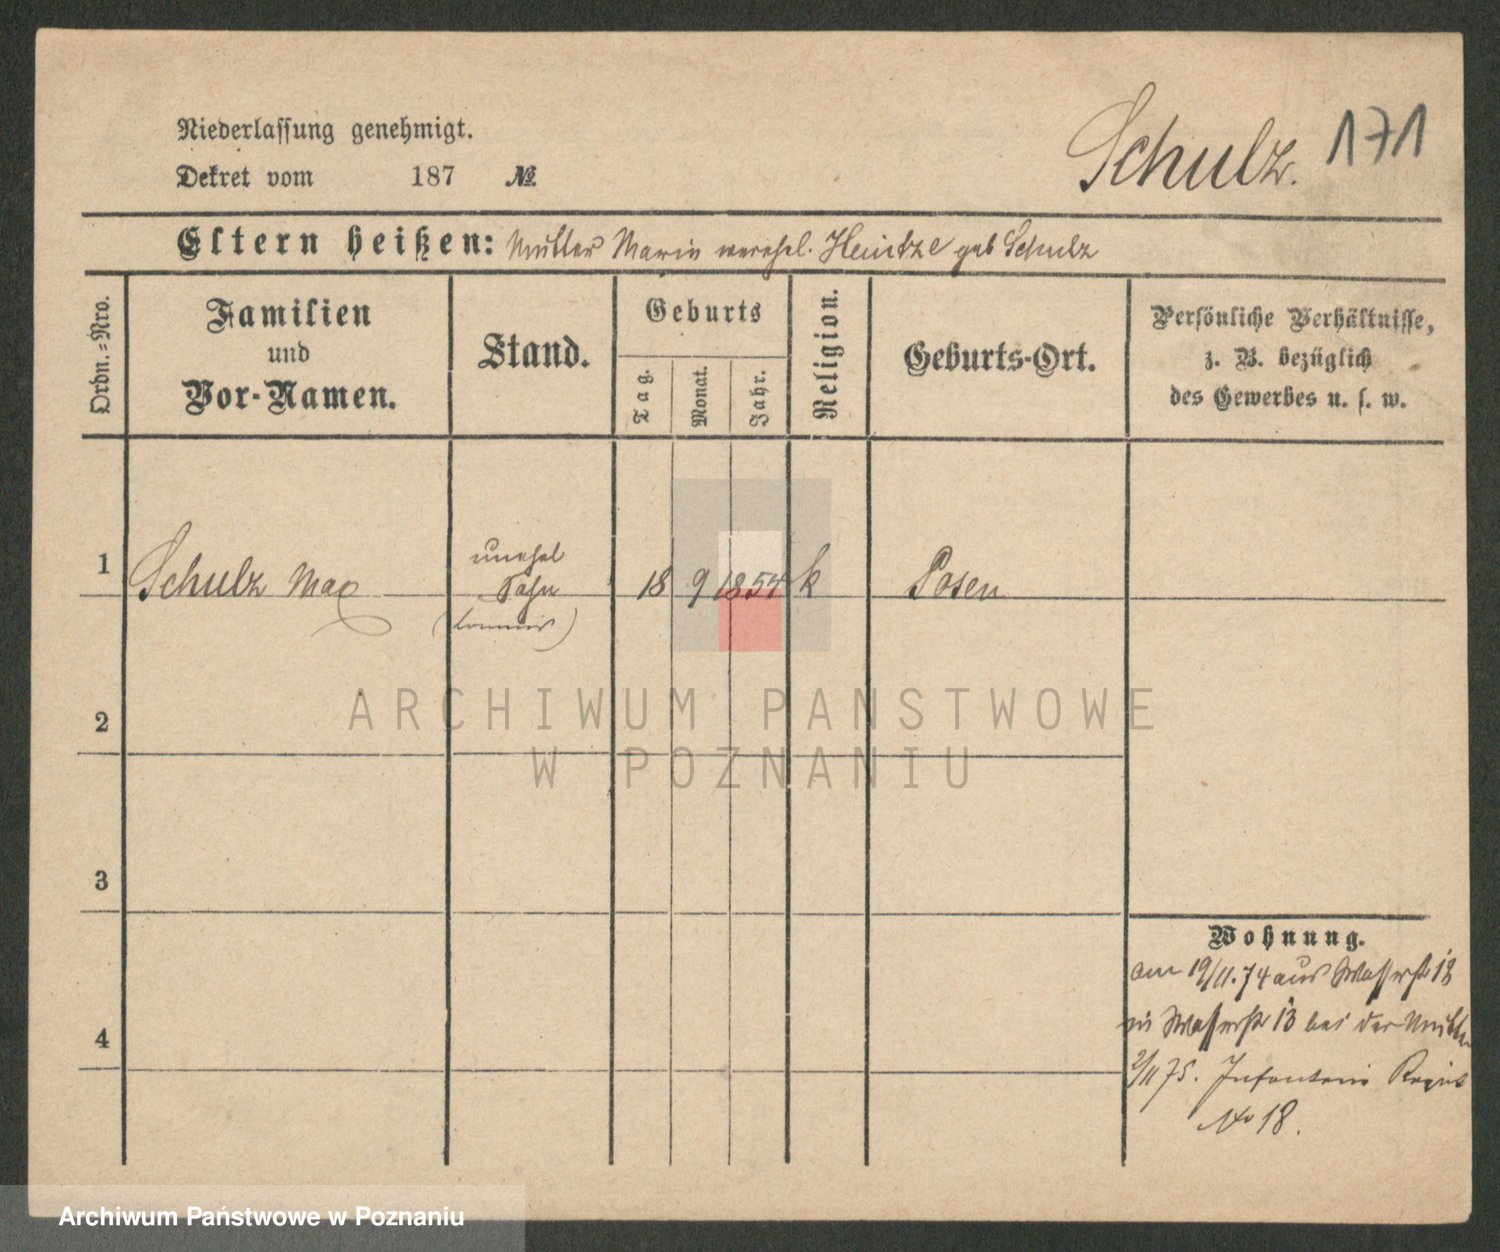 Niederlassung genehmigt.
Dekret vom 187 №
Schulz. 171
Eltern heißen: Mutter Marie verehel. Heintze geb Schulz
Ordn.-Nro.
Familien
und
Vor-Namen.
Stand.
Geburts
Tag.
Monat.
Jahr.
Religion.
Geburts-Ort.
Persönliche Verhältnisse,
z. B. bezüglich
des Gewerbes u. s. w.
1
Schulz Max
unehel
Sohn
(Commis)
18 9 1854 k
Posen
2
3
4
Wohnung.
am 19/11.74 aus Wasserstr 12
in Wasserstr 13 bei der Mutter
2/11 75. Infanterie Regmt
No 18.
ARCHIWUM PAŃSTWOWE
W POZNANIU
Archiwum Państwowe w Poznaniu